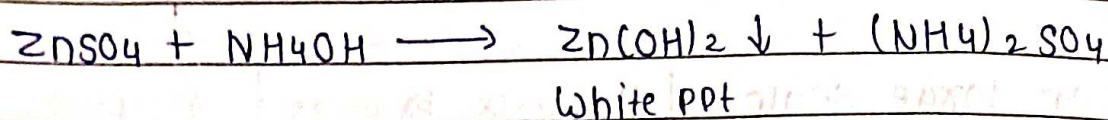 ZnSO4 + NH4OH ⟶ Zn(OH)2 ↓ + (NH4)2 SO4
White ppt